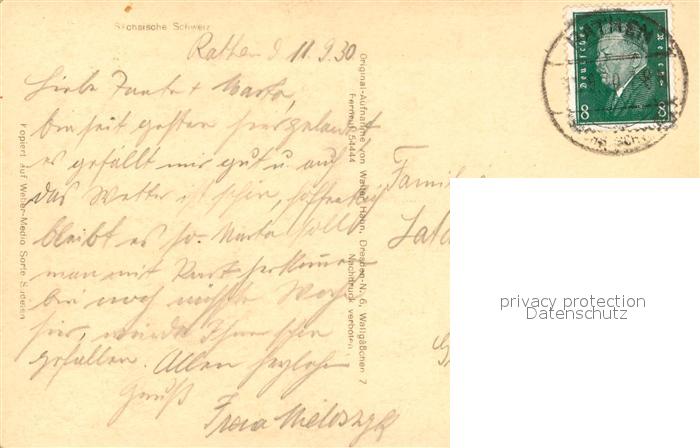 Sächsische Schweiz
Rathen d 11.9.30
Liebe Tante + Marta,
bin seit gestern hier gelandet
es gefällt mir gut u. auch
das Wetter ist schön, hoffentlich
bleibt es so. Marta soll
man mit
bin noch nächste Woche
hier, würde Ihnen schon
gefallen. Allen herzlichen
Gruß
Frau
Original-Aufnahme von Walter Hahn, Dresden-N. 6, Wallgäßchen 7
Fernruf 54444
Nachdruck verboten
Kopiert auf Weber-Medio Sorte Sudeten
Familie
RATHEN
Deutsches Reich
8 8
privacy protection
Datenschutz